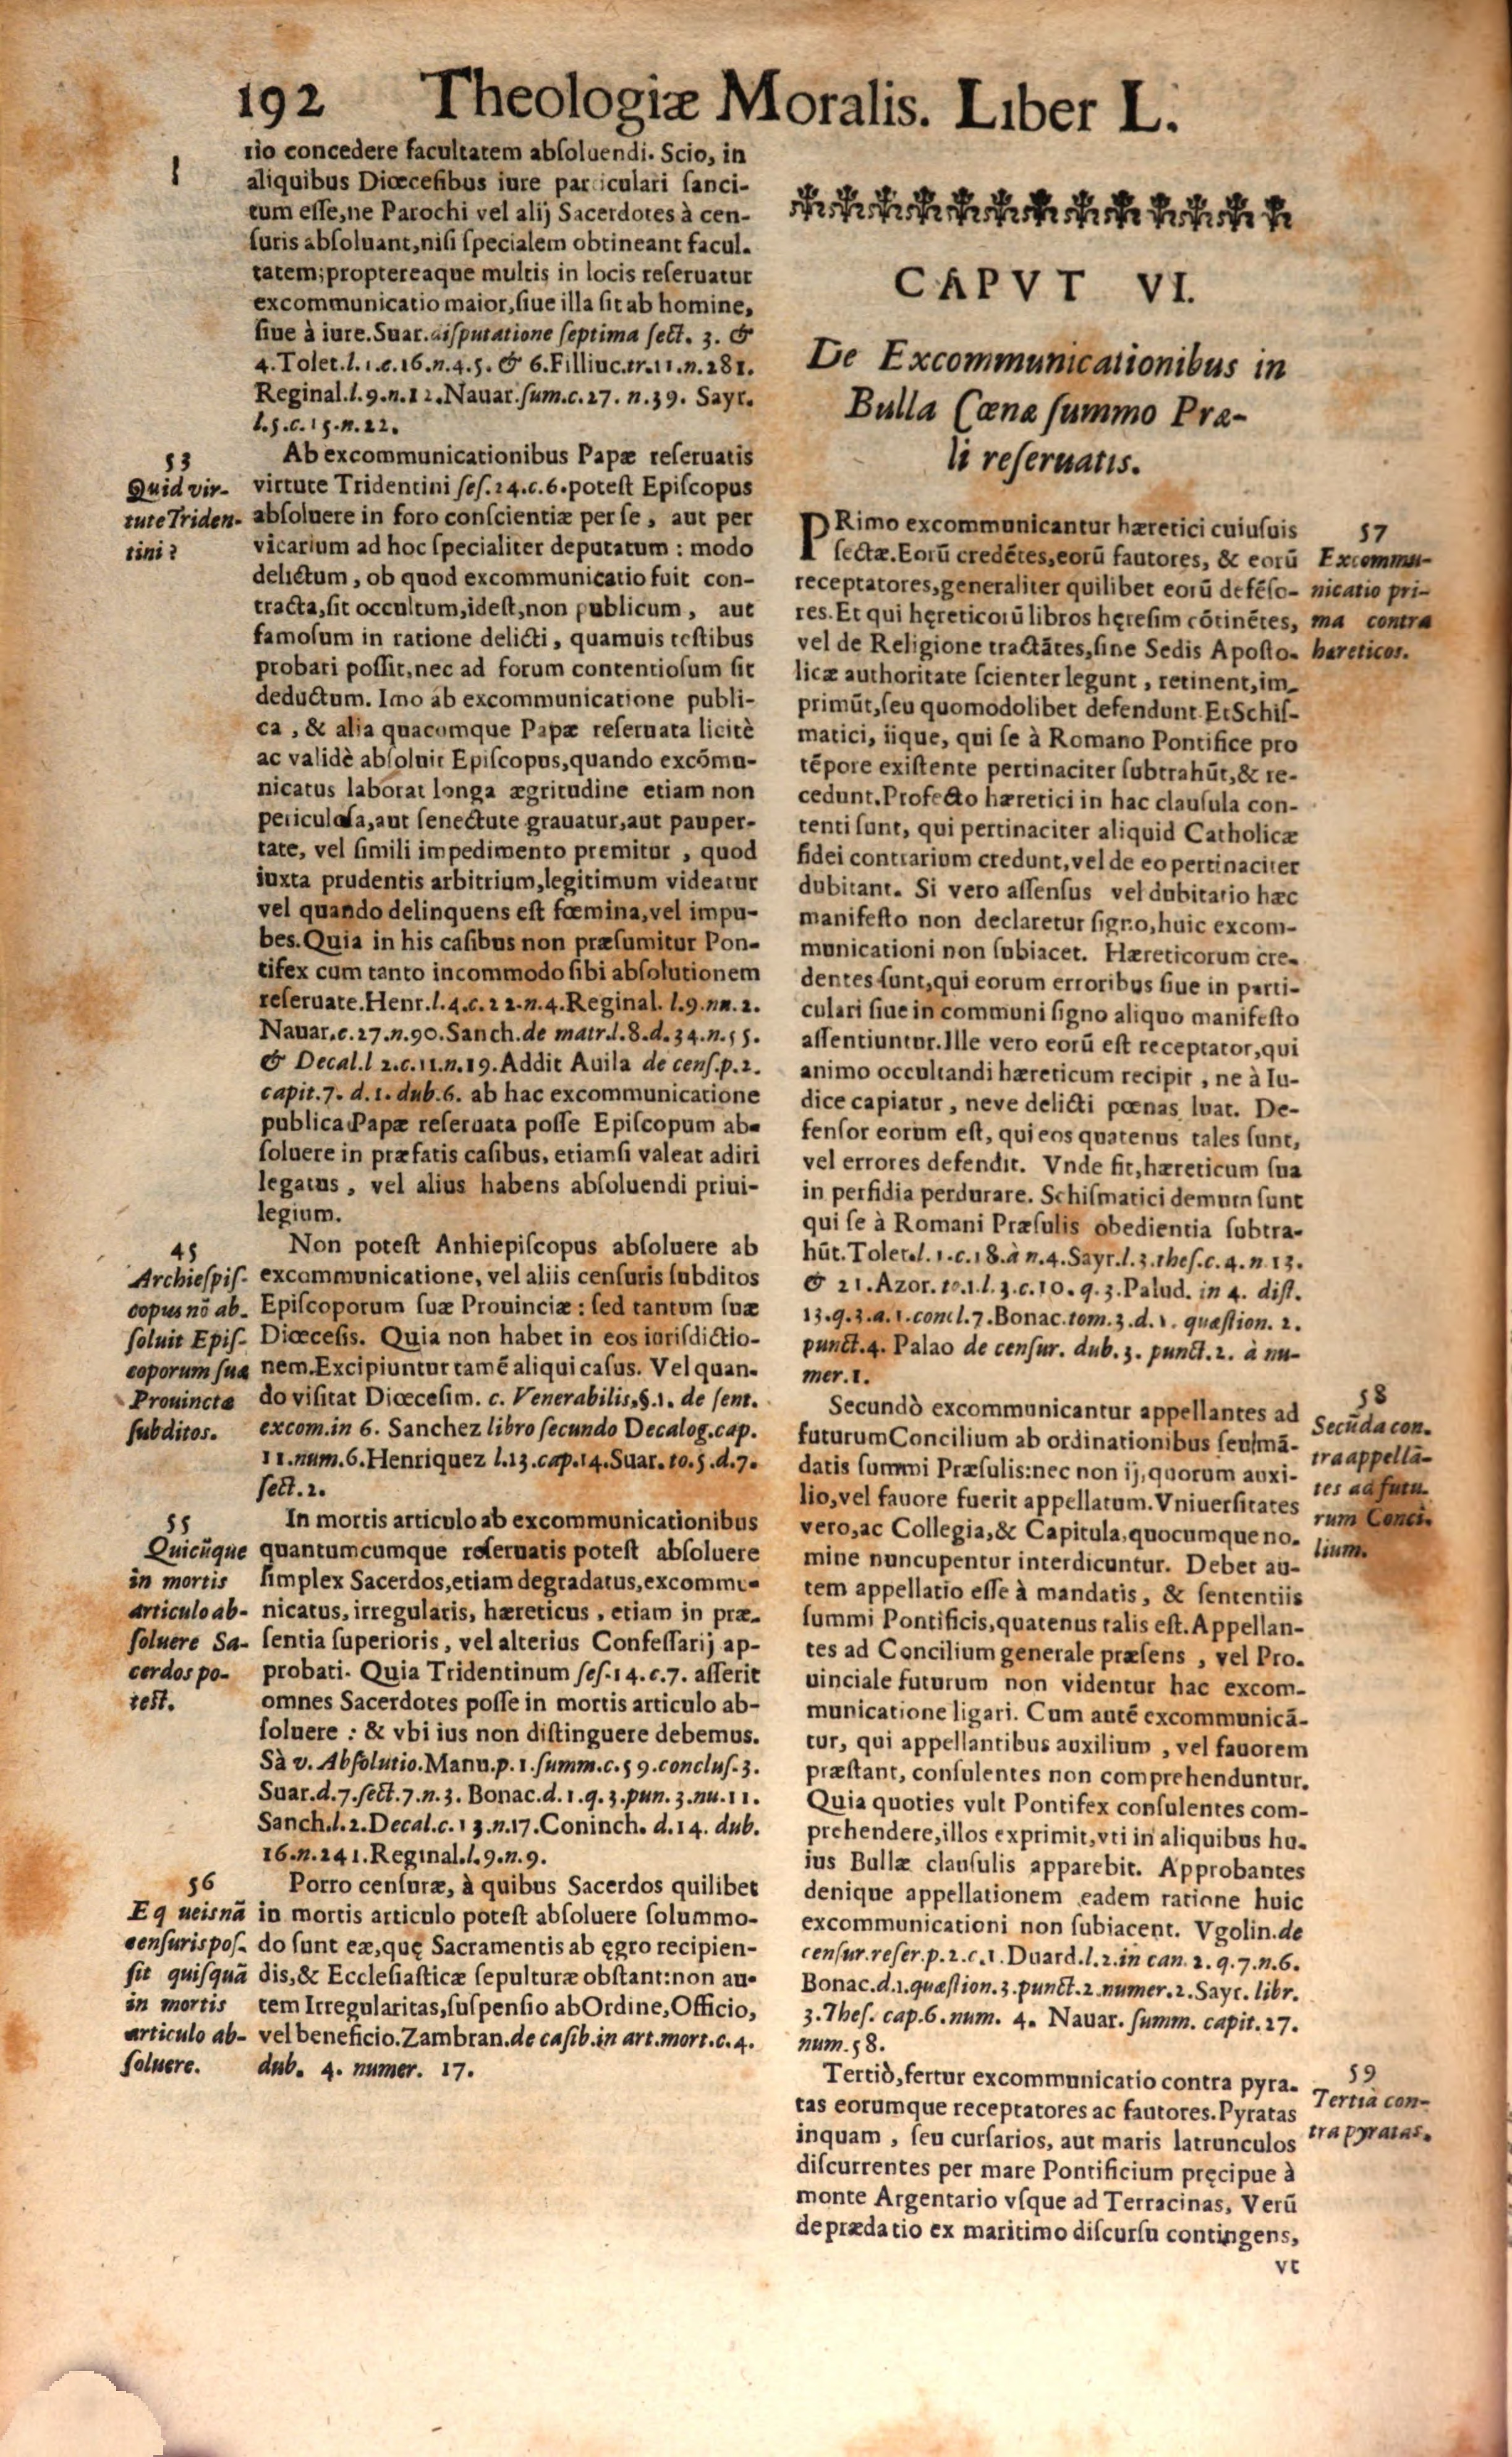 192 Theologiæ Moralis. Liber L.
tio concedere facultatem absoluendi. Scio, in
aliquibus Diœcesibus iure particulari sanci-
tum esse, ne Parochi vel alij Sacerdotes à cen-
suris absoluant, nisi specialem obtineant facul-
tatem; proptereaque multis in locis reseruatur
excommunicatio maior, siue illa sit ab homine,
siue à iure. Suar. disputatione septima sect. 3. &
4. Tolet. l. 1. c. 16. n. 4. 5. & 6. Filliuc. tr. 11. n. 281.
Reginal. l. 9. n. 12. Nauar. sum. c. 27. n. 39. Sayr.
l. 5. c. 15. n. 22.
53
Quid vir-
tute Triden-
tini?
Ab excommunicationibus Papæ reseruatis
virtute Tridentini ses. 24. c. 6. potest Episcopus
absoluere in foro conscientiæ per se, aut per
vicarium ad hoc specialiter deputatum: modo
delictum, ob quod excommunicatio fuit con-
tracta, sit occultum, idest, non publicum, aut
famosum in ratione delicti, quamuis testibus
probari possit, nec ad forum contentiosum sit
deductum. Imo ab excommunicatione publi-
ca, & alia quacumque Papæ reseruata licitè
ac validè absoluit Episcopus, quando excōmu-
nicatus laborat longa ægritudine etiam non
periculosa, aut senectute grauatur, aut pauper-
tate, vel simili impedimento premitur, quod
iuxta prudentis arbitrium, legitimum videatur
vel quando delinquens est fœmina, vel impu-
bes. Quia in his casibus non præsumitur Pon-
tifex cum tanto incommodo sibi absolutionem
reseruate. Henr. l. 4. c. 22. n. 4. Reginal. l. 9. nn. 2.
Nauar. c. 27. n. 90. Sanch. de matr. l. 8. d. 34. n. 55.
& Decal. l 2. c. 11. n. 19. Addit Auila de cens. p. 2.
capit. 7. d. 1. dub. 6. ab hac excommunicatione
publica Papæ reseruata posse Episcopum ab-
soluere in præfatis casibus, etiamsi valeat adiri
legatus, vel alius habens absoluendi priui-
legium.
45
Archiespis-
copus nō ab-
soluit Epis-
coporum sua
Prouincta
subditos.
Non potest Anhiepiscopus absoluere ab
excommunicatione, vel aliis censuris subditos
Episcoporum suæ Prouinciæ: sed tantum suæ
Diœcesis. Quia non habet in eos iurisdictio-
nem. Excipiuntur tamē aliqui casus. Vel quan-
do visitat Diœcesim. c. Venerabilis, §. 1. de sent.
excom. in 6. Sanchez libro secundo Decalog. cap.
11. num. 6. Henriquez l. 13. cap. 14. Suar. to. 5. d. 7.
sect. 2.
55
Quicūque
in mortis
articulo ab-
soluere Sa-
cerdos po-
test.
In mortis articulo ab excommunicationibus
quantumcumque reseruatis potest absoluere
simplex Sacerdos, etiam degradatus, excommu-
nicatus, irregularis, hæreticus, etiam in præ-
sentia superioris, vel alterius Confessarij ap-
probati. Quia Tridentinum ses. 14. c. 7. asserit
omnes Sacerdotes posse in mortis articulo ab-
soluere: & vbi ius non distinguere debemus.
Sà v. Absolutio. Manu. p. 1. summ. c. 59. conclus. 3.
Suar. d. 7. sect. 7. n. 3. Bonac. d. 1. q. 3. pun. 3. nu. 11.
Sanch. l. 2. Decal. c. 13. n. 17. Coninch. d. 14. dub.
16. n. 241. Reginal. l. 9. n. 9.
56
E q ueisnā
censuris pos-
sit quisquā
in mortis
articulo ab-
soluere.
Porro censuræ, à quibus Sacerdos quilibet
in mortis articulo potest absoluere solummo-
do sunt eæ, quę Sacramentis ab ęgro recipien-
dis, & Ecclesiasticæ sepulturæ obstant: non au-
tem Irregularitas, suspensio ab Ordine, Officio,
vel beneficio. Zambran. de casib. in art. mort. c. 4.
dub. 4. numer. 17.
CAPVT VI.
De Excommunicationibus in
Bulla Cœnæ summo Præ-
li reseruatis.
57
Excommu-
nicatio pri-
ma contra
hæreticos.
PRimo excommunicantur hæretici cuiusuis
sectæ. Eorū credētes, eorū fautores, & eorū
receptatores, generaliter quilibet eorū defēso-
res. Et qui hęreticorū libros hęresim cōtinētes,
vel de Religione tractātes, sine Sedis Aposto-
licæ authoritate scienter legunt, retinent, im-
primūt, seu quomodolibet defendunt. Et Schis-
matici, iique, qui se à Romano Pontifice pro
tēpore existente pertinaciter subtrahūt, & re-
cedunt. Profecto hæretici in hac clausula con-
tenti sunt, qui pertinaciter aliquid Catholicæ
fidei contrarium credunt, vel de eo pertinaciter
dubitant. Si vero assensus vel dubitatio hæc
manifesto non declaretur signo, huic excom-
municationi non subiacet. Hæreticorum cre-
dentes sunt, qui eorum erroribus siue in parti-
culari siue in communi signo aliquo manifesto
assentiuntur. Ille vero eorū est receptator, qui
animo occultandi hæreticum recipit, ne à Iu-
dice capiatur, neve delicti pœnas luat. De-
fensor eorum est, qui eos quatenus tales sunt,
vel errores defendit. Vnde fit, hæreticum sua
in perfidia perdurare. Schismatici demum sunt
qui se à Romani Præsulis obedientia subtra-
hūt. Tolet. l. 1. c. 18. à n. 4. Sayr. l. 3. thes. c. 4. n 13.
& 21. Azor. to. 1. l. 3. c. 10. q. 3. Palud. in 4. dist.
13. q. 3. a. 1. concl. 7. Bonac. tom. 3. d. 1. quæstion. 2.
punct. 4. Palao de censur. dub. 3. punct. 2. à nu-
mer. 1.
58
Secūda con-
tra appellā-
tes ad futu-
rum Conci-
lium.
Secundò excommunicantur appellantes ad
futurum Concilium ab ordinationibus seu mā-
datis summi Præsulis: nec non ij, quorum auxi-
lio, vel fauore fuerit appellatum. Vniuersitates
vero, ac Collegia, & Capitula, quocumque no-
mine nuncupentur interdicuntur. Debet au-
tem appellatio esse à mandatis, & sententiis
summi Pontificis, quatenus talis est. Appellan-
tes ad Concilium generale præsens, vel Pro-
uinciale futurum non videntur hac excom-
municatione ligari. Cum autē excommunicā-
tur, qui appellantibus auxilium, vel fauorem
præstant, consulentes non comprehenduntur.
Quia quoties vult Pontifex consulentes com-
prehendere, illos exprimit, vti in aliquibus hu-
ius Bullæ clausulis apparebit. Approbantes
denique appellationem eadem ratione huic
excommunicationi non subiacent. Vgolin. de
censur. reser. p. 2. c. 1. Duard. l. 2. in can. 2. q. 7. n. 6.
Bonac. d. 1. quæstion. 3. punct. 2. numer. 2. Sayr. libr.
3. Thes. cap. 6. num. 4. Nauar. summ. capit. 27.
num. 58.
59
Tertia con-
tra pyratas.
Tertiò, fertur excommunicatio contra pyra-
tas eorumque receptatores ac fautores. Pyratas
inquam, seu cursarios, aut maris latrunculos
discurrentes per mare Pontificium pręcipue à
monte Argentario vsque ad Terracinas, Verū
deprædatio ex maritimo discursu contingens,
vt